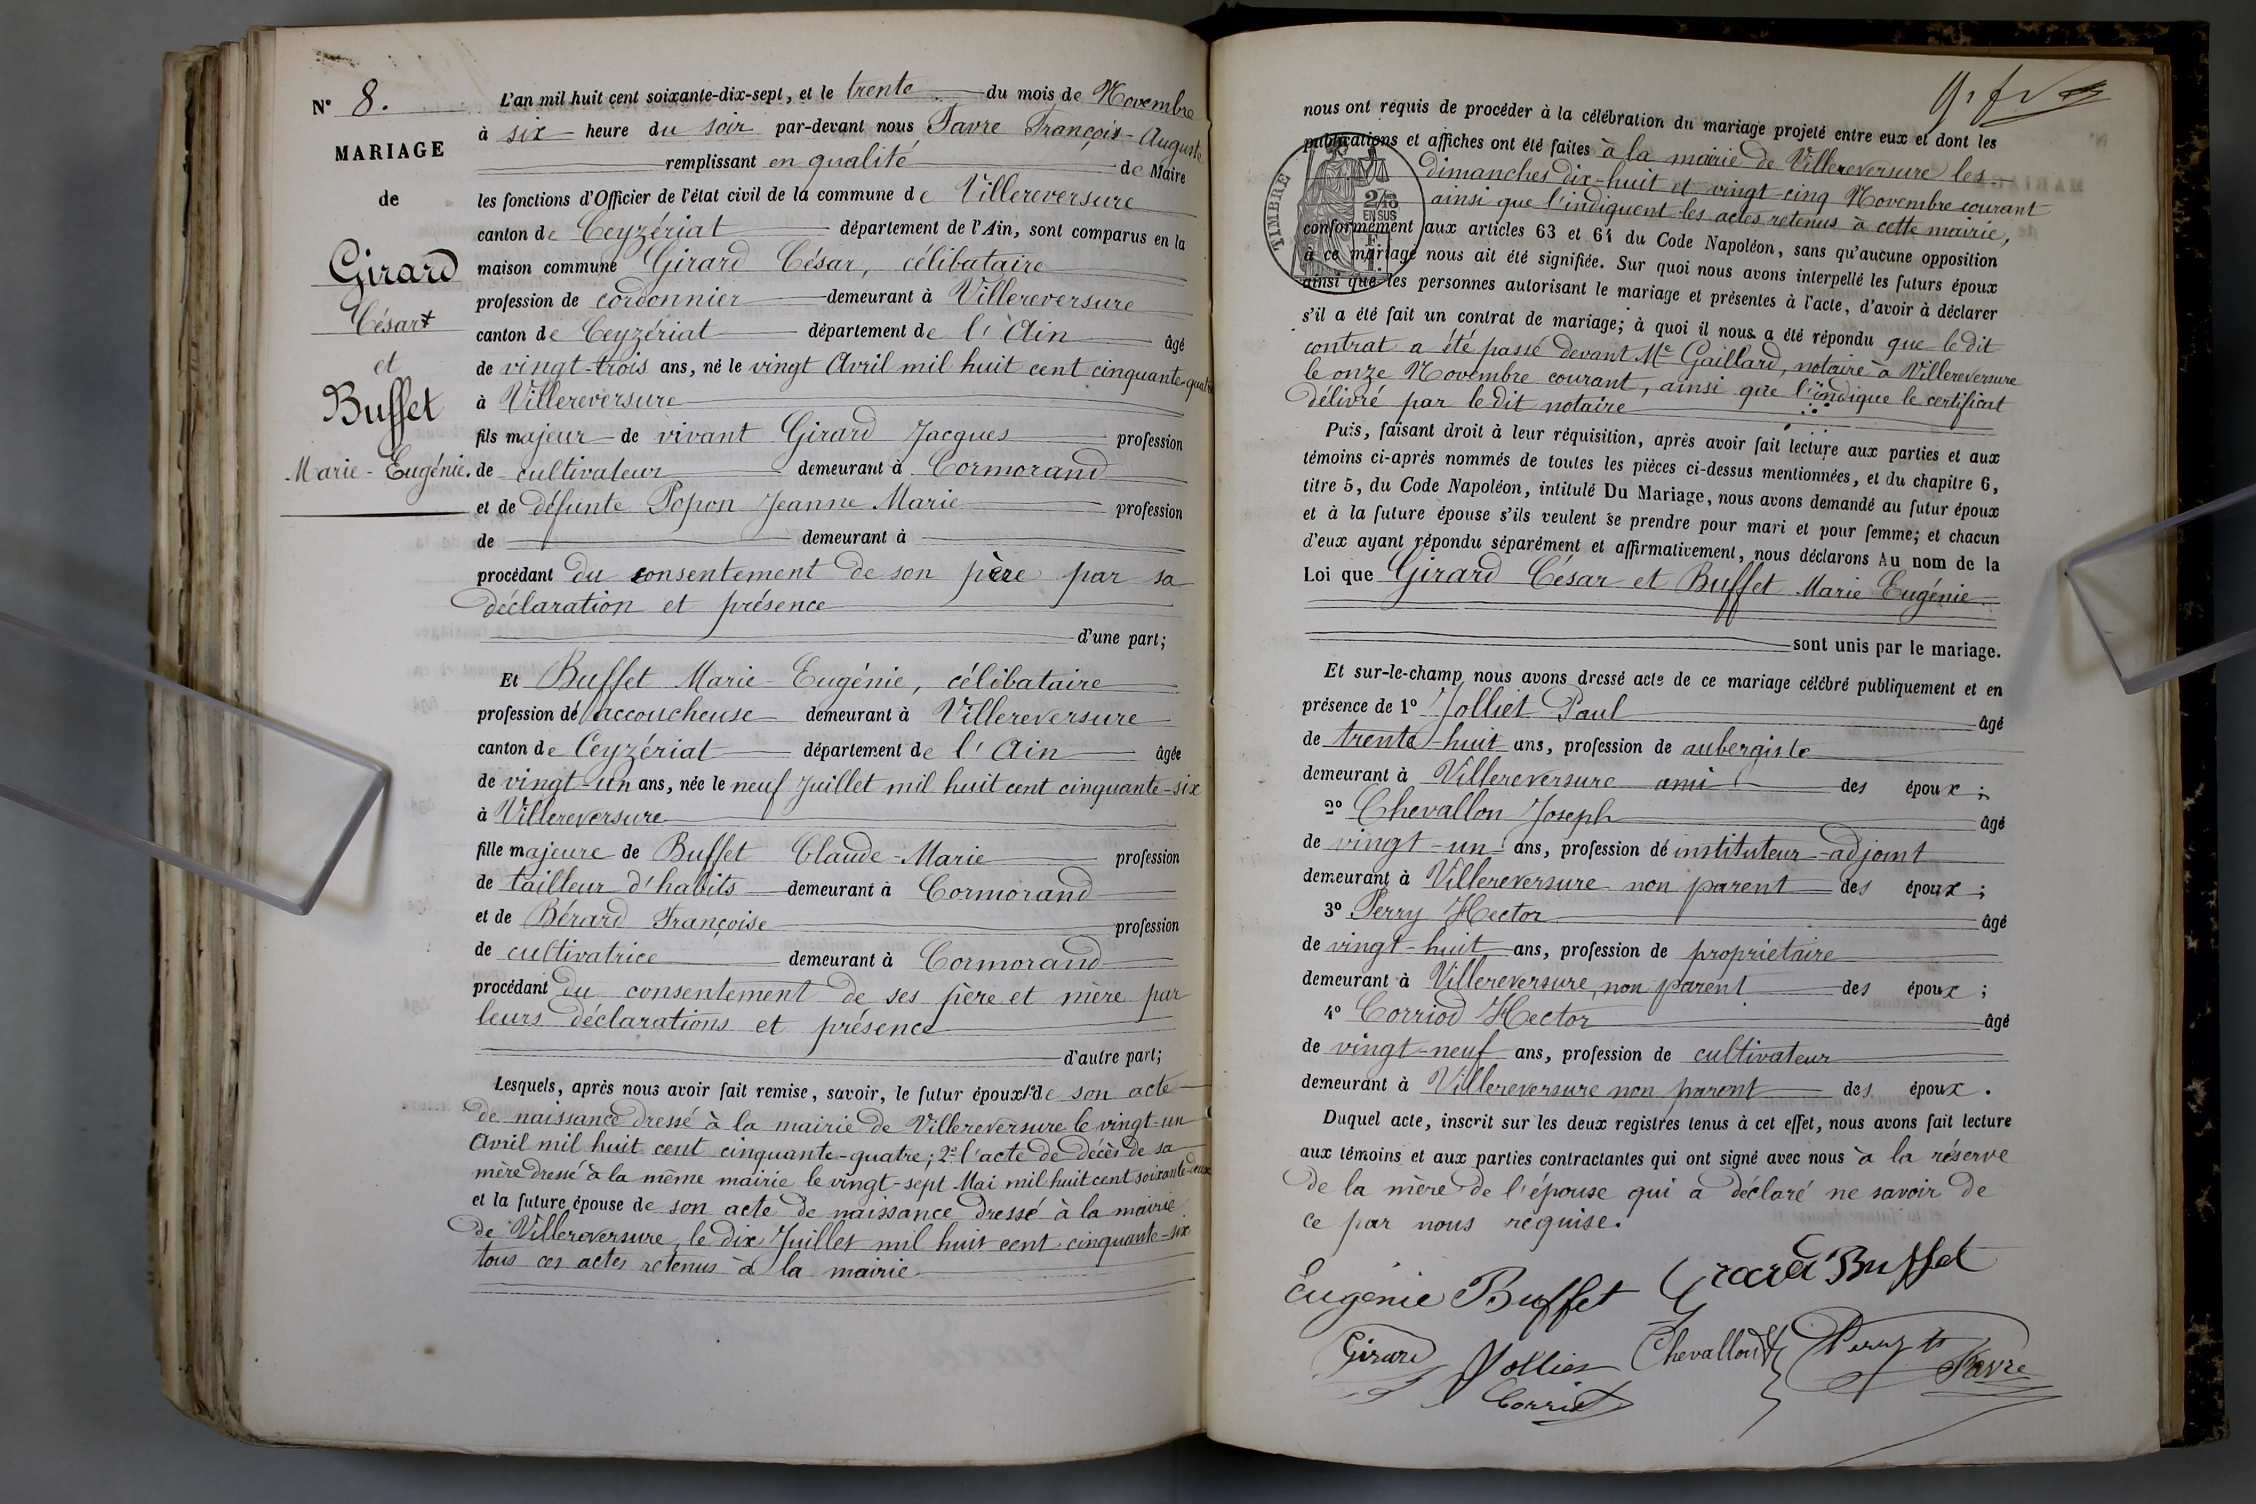 N° 8.
MARIAGE
de
Girard
César
et
Buffet
Marie-Eugénie.
L'an mil huit cent soixante-dix-sept, et le trente du mois de Novembre
à six heure du soir par-devant nous Favre François-Auguste
remplissant en qualité de Maire
les fonctions d'Officier de l'état civil de la commune de Villereversure
canton de Ceyzériat département de l'Ain, sont comparus en la
maison commune Girard César, célibataire
profession de cordonnier demeurant à Villereversure
canton de Ceyzériat département de l'Ain âgé
de vingt-trois ans, né le vingt Avril mil huit cent cinquante-quatre
à Villereversure
fils majeur de vivant Girard Jacques profession
de cultivateur demeurant à Cormorand
et de défunte Popon Jeanne Marie profession
de demeurant à
procédant du consentement de son père par sa
déclaration et présence
d'une part;
Et Buffet Marie-Eugénie, célibataire
profession de accoucheuse demeurant à Villereversure
canton de Ceyzériat département de l'Ain âgée
de vingt-un ans, née le neuf Juillet mil huit cent cinquante-six
à Villereversure
fille majeure de Buffet Claude-Marie profession
de tailleur d'habits demeurant à Cormorand
et de Bérard Françoise profession
de cultivatrice demeurant à Cormorand
procédant du consentement de ses père et mère par
leurs déclarations et présence
d'autre part;
Lesquels, après nous avoir fait remise, savoir, le futur époux 1° de son acte
de naissance dressé à la mairie de Villereversure le vingt-un
Avril mil huit cent cinquante-quatre; 2° l'acte de décès de sa
mère dressé à la même mairie le vingt-sept Mai mil huit cent soixante-deux
et la future épouse de son acte de naissance dressé à la mairie
de Villereversure, le dix Juillet mil huit cent cinquante-six
tous ces actes retenus à la mairie
nous ont requis de procéder à la célébration du mariage projeté entre eux et dont les
publications et affiches ont été faites à la mairie de Villereversure les
dimanches dix-huit et vingt-cinq Novembre courant
ainsi que l'indiquent les actes retenus à cette mairie,
TIMBRE
2/10
EN SUS
1 F.
conformément aux articles 63 et 64 du Code Napoléon, sans qu'aucune opposition
à ce mariage nous ait été signifiée. Sur quoi nous avons interpellé les futurs époux
ainsi que les personnes autorisant le mariage et présentes à l'acte, d'avoir à déclarer
s'il a été fait un contrat de mariage; à quoi il nous a été répondu que le dit
contrat a été passé devant Me Gaillard, notaire à Villereversure
le onze Novembre courant, ainsi que l'indique le certificat
délivré par le dit notaire
Puis, faisant droit à leur réquisition, après avoir fait lecture aux parties et aux
témoins ci-après nommés de toutes les pièces ci-dessus mentionnées, et du chapitre 6,
titre 5, du Code Napoléon, intitulé Du Mariage, nous avons demandé au futur époux
et à la future épouse s'ils veulent se prendre pour mari et pour femme; et chacun
d'eux ayant répondu séparément et affirmativement, nous déclarons Au nom de la
Loi que Girard César et Buffet Marie Eugénie
sont unis par le mariage.
Et sur-le-champ nous avons dressé acte de ce mariage célébré publiquement et en
présence de 1° Jolliet Paul âgé
de trente-huit ans, profession de aubergiste
demeurant à Villereversure ami des époux;
2° Chevallon Joseph âgé
de vingt-un ans, profession de instituteur-adjoint
demeurant à Villereversure non parent des époux;
3° Perry Hector âgé
de vingt-huit ans, profession de propriétaire
demeurant à Villereversure, non parent des époux;
4° Corriod Hector âgé
de vingt-neuf ans, profession de cultivateur
demeurant à Villereversure non parent des époux.
Duquel acte, inscrit sur les deux registres tenus à cet effet, nous avons fait lecture
aux témoins et aux parties contractantes qui ont signé avec nous à la réserve
de la mère de l'épouse qui a déclaré ne savoir de
ce par nous requise.
Eugénie Buffet Girard Buffet
Girard Chevallon Favre